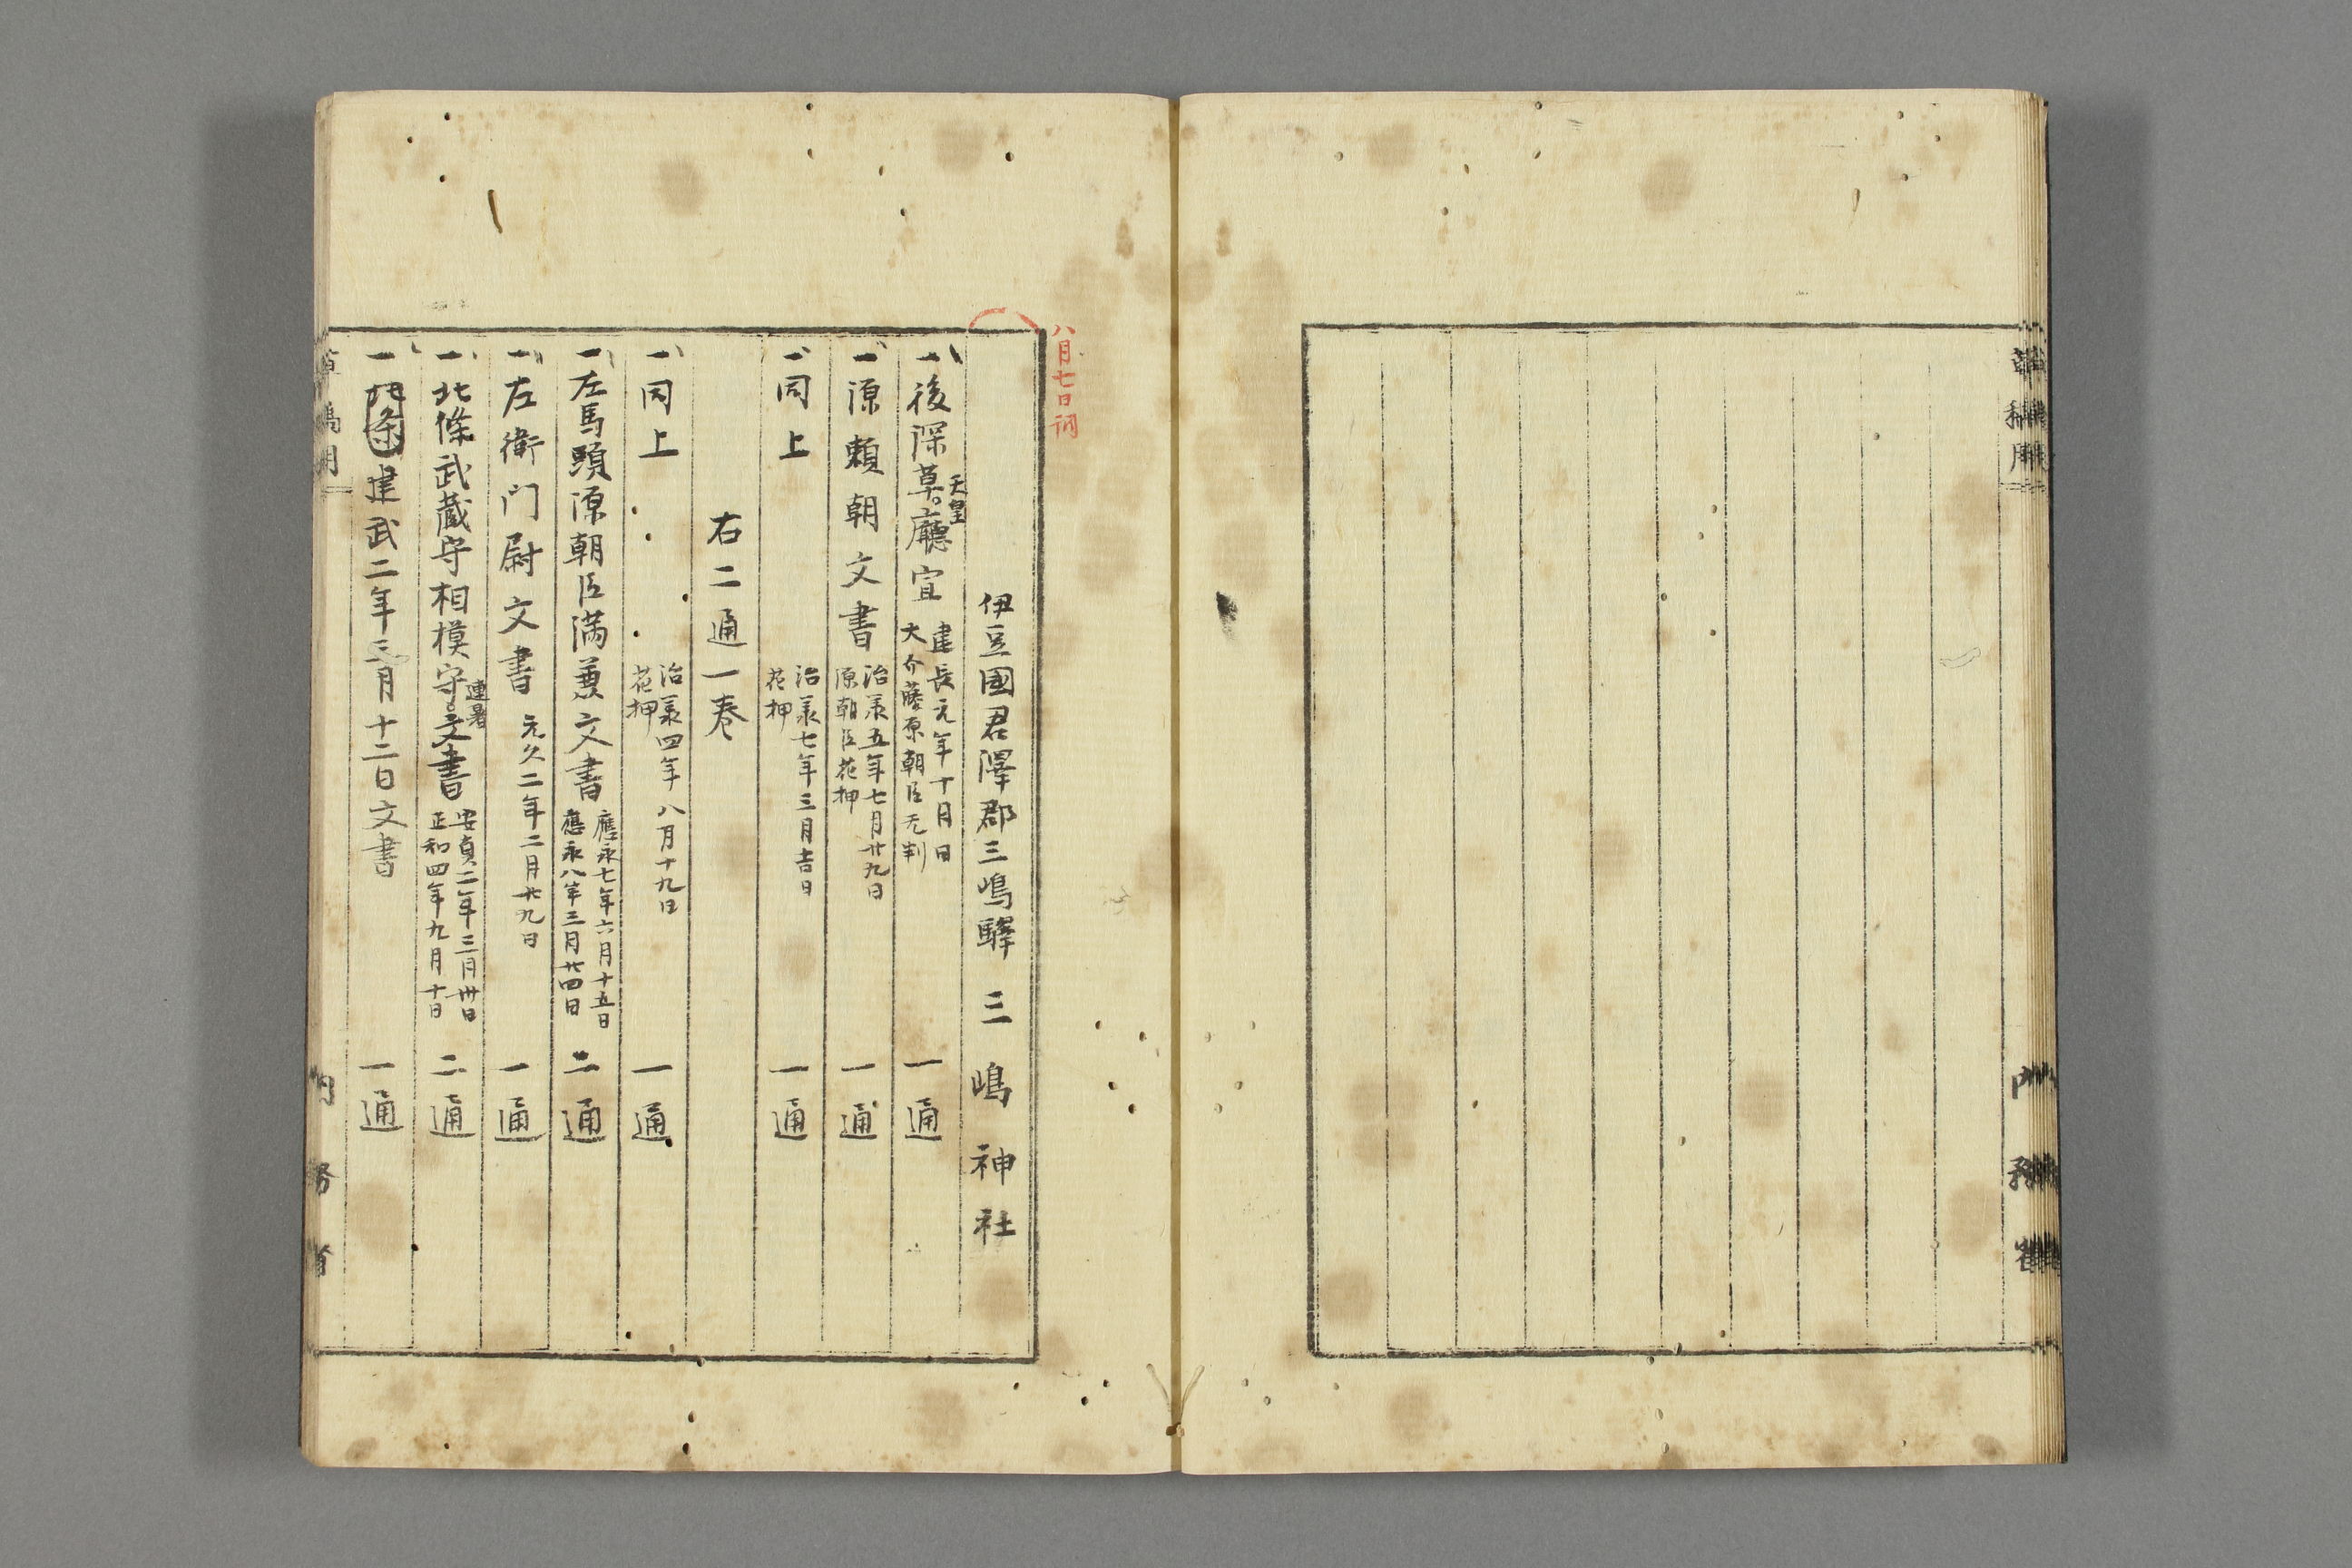 八月七日
伊豆國君澤郡三嶋驛 三嶋神社
一後深草天皇廳宣 建長元年十月日 大介藤原朝臣无判 一通
一源頼朝文書 治承五年七月廿九日 源朝臣花押 一通
一同上 治承七年三月吉日 花押 一通
右二通一巻
一同上 治承四年八月十九日 花押 一通
一左馬頭源朝臣満兼文書 應永七年六月十五日 應永八年三月廿四日 二通
一左衛門尉文書 元久二年二月廿九日 一通
一北條武蔵守相模守連署文書 安貞二年三月卅日 正和四年九月十日 二通
一北条建武二年三月十二日文書 一通
内務省